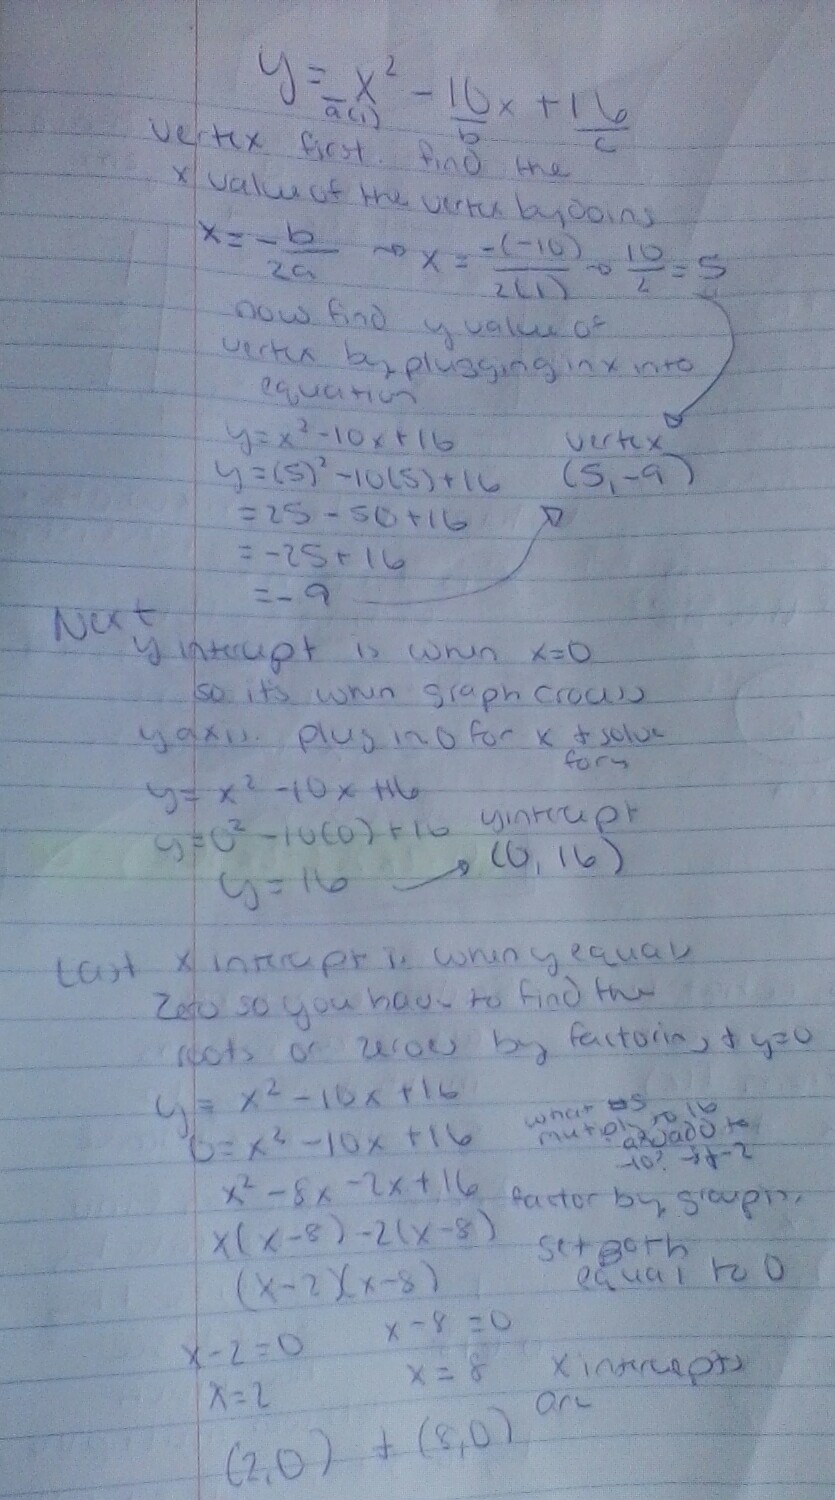 y = x² - 10x + 16
a(1) b c
vertex first. find the
x value of the vertex by doing
x = -b/2a → x = -(-10)/2(1) → 10/2 = 5
now find y value of
vertex by plugging in x into
equation
y = x² - 10x + 16 vertex
y = (5)² - 10(5) + 16 (5, -9)
= 25 - 50 + 16
= -25 + 16
= -9
Next
y intercept is when x=0
so its when graph crosses
y axis. plug in 0 for x + solve
for y
y = x² - 10x + 16
y = 0² - 10(0) + 16 y intercept
y = 16 → (0, 16)
Last x intercept is when y equals
zero so you have to find the
roots or zeroes by factoring + y=0
y = x² - 10x + 16
0 = x² - 10x + 16
what #s
multiply to 16
add to
-10? -8+-2
x² - 8x - 2x + 16 factor by grouping
x(x-8) - 2(x-8) set both
(x-2)(x-8) equal to 0
x-2=0 x-8=0
x=2 x=8 x intercepts
are
(2,0) + (8,0)